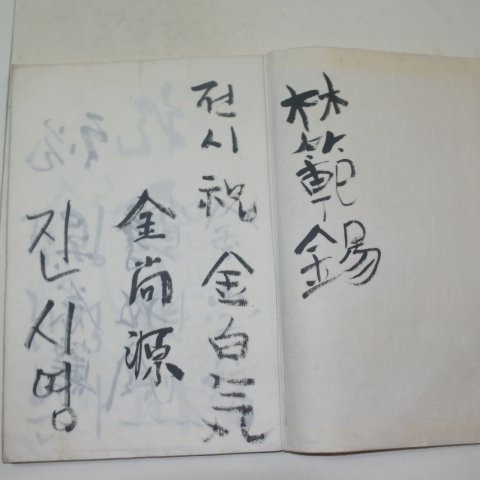 林範錫
전시 祝 金白気
金尚源
진시명